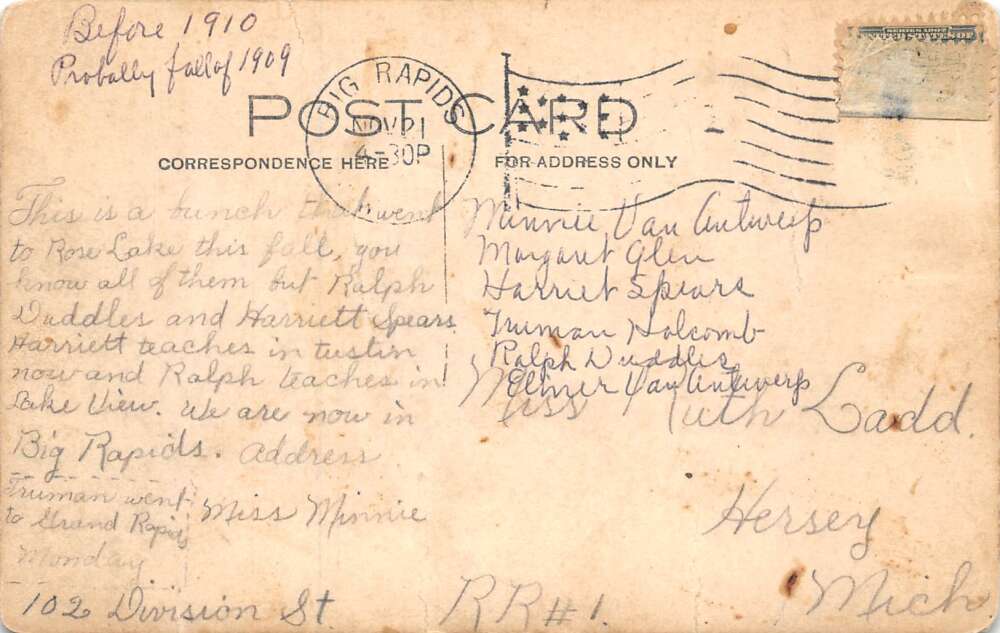 Before 1910
Probally fall of 1909
BIG RAPIDS
NOV 21
4-30P
POST CARD
CORRESPONDENCE HERE
FOR ADDRESS ONLY
SERIES 1902
This is a bunch that went
to Rose Lake this fall, you
know all of them but Ralph
Duddles and Harriett Spears
Harriett teaches in tustin
now and Ralph teaches in
Lake View. We are now in
Big Rapids. Address
Miss Minnie
Truman went
to Grand Rapids
Monday
102 Division St.
Minnie Van Antwerp
Margaret Glen
Harriet Spears
Truman Holcomb
Ralph Duddles
Elmer Van Antwerp
Miss Ruth Ladd.
Hersey
Mich
RR#1.